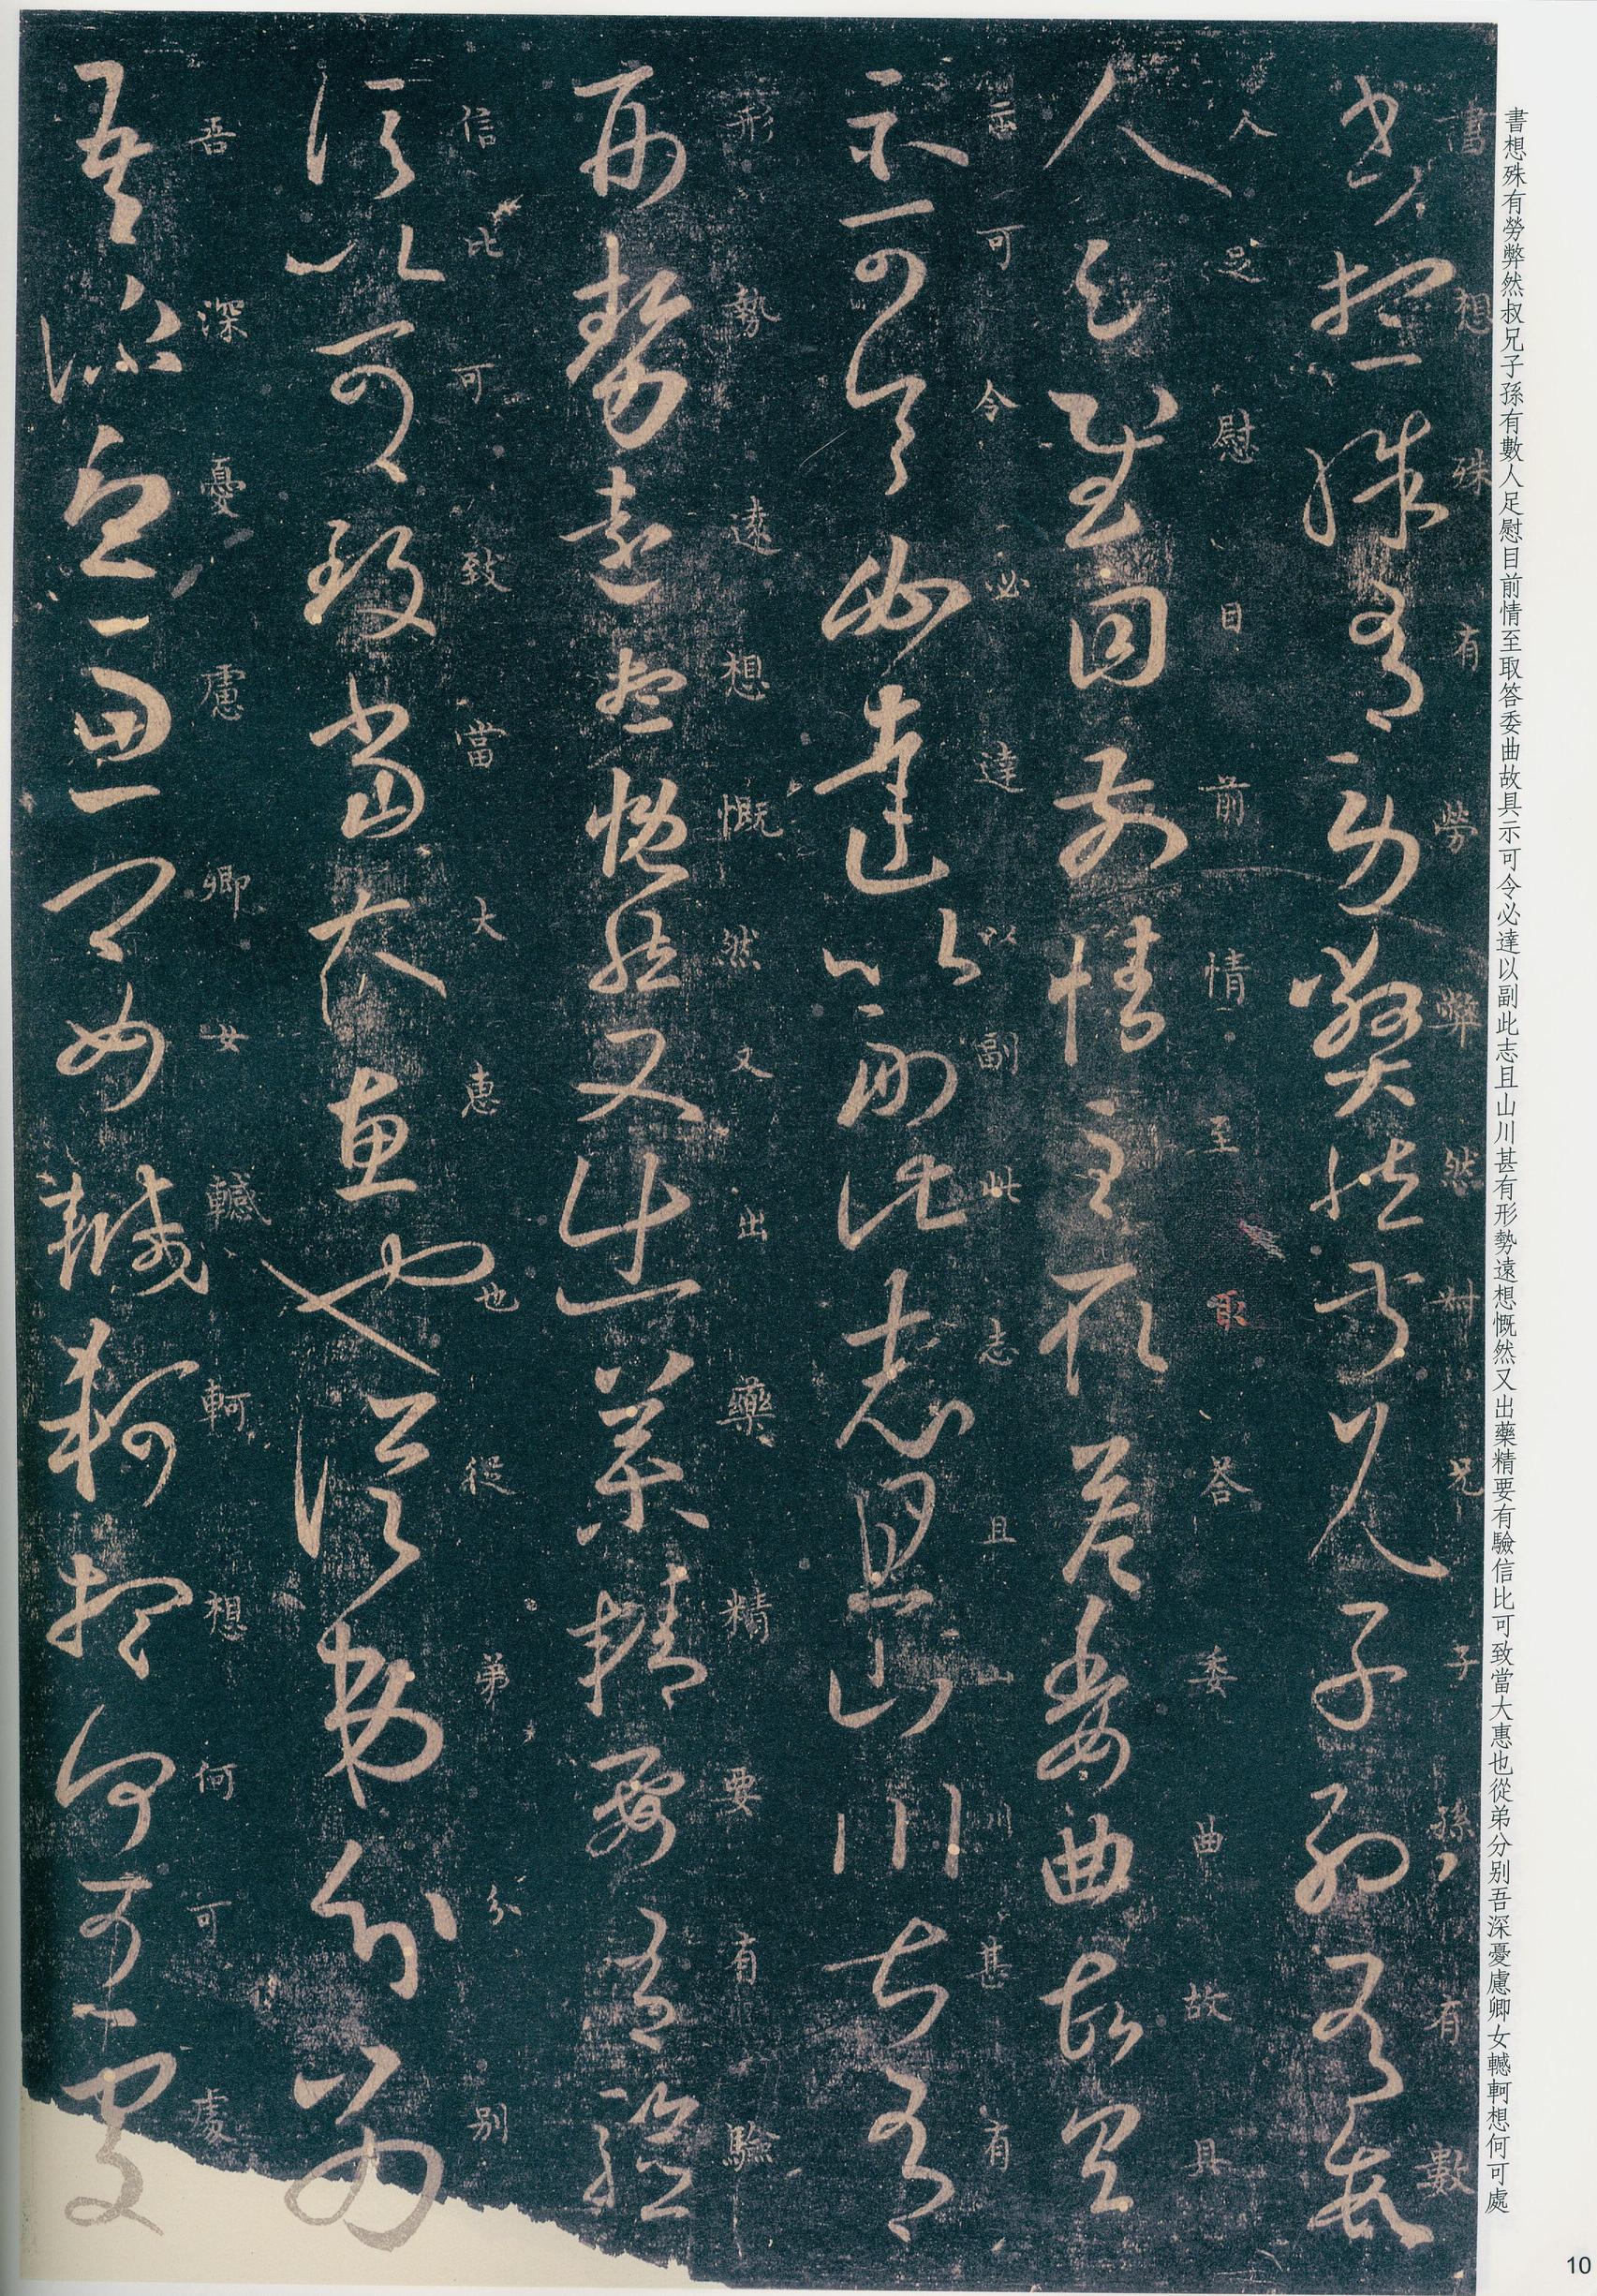 書想殊有勞弊然叔兄子孫有數人足慰目前情至取答委曲故具示可令必達以副此志且山川甚有形勢遠想慨然又出藥精要有驗信比可致當大惠也從弟分别吾深憂慮卿女轗軻想何可處
書想殊有勞弊然叔兄子孫有數
書想殊有勞弊然叔兄子孫有數
人足慰目前情至取答委曲故具
人足慰目前情至取答委曲故具
示可令必達以副此志且山川甚有
示可令必達以副此志且山川甚有
形勢遠想慨然又出藥精要有驗
形勢遠想慨然又出藥精要有驗
信比可致當大惠也從弟分别
信比可致當大惠也從弟分别
吾深憂慮卿女轗軻想何可處
吾深憂慮卿女轗軻想何可處
10